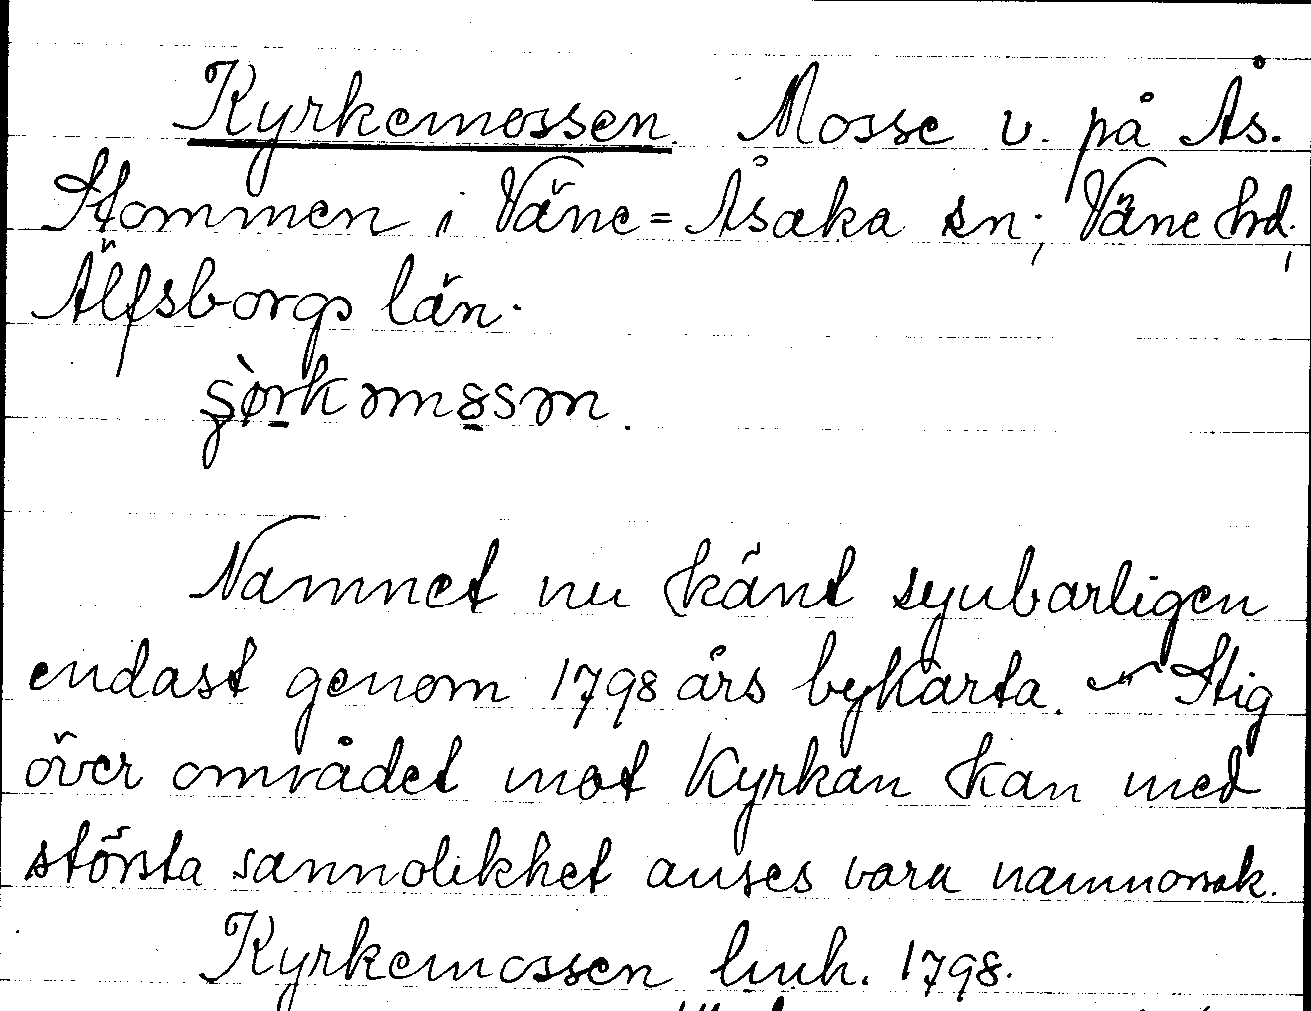 Kyrkemossen. Mosse v. på Ås.
Stommen i Väne=Åsaka sn; Väne hd;
Älfsborgs län.
Namnet nu känt synbarligen
endast genom 1798 års bykarta. Stig
över området mot Kyrkan kan med
största sannolikhet anses vara namnorsak.
Kyrkemossen lmh. 1798.